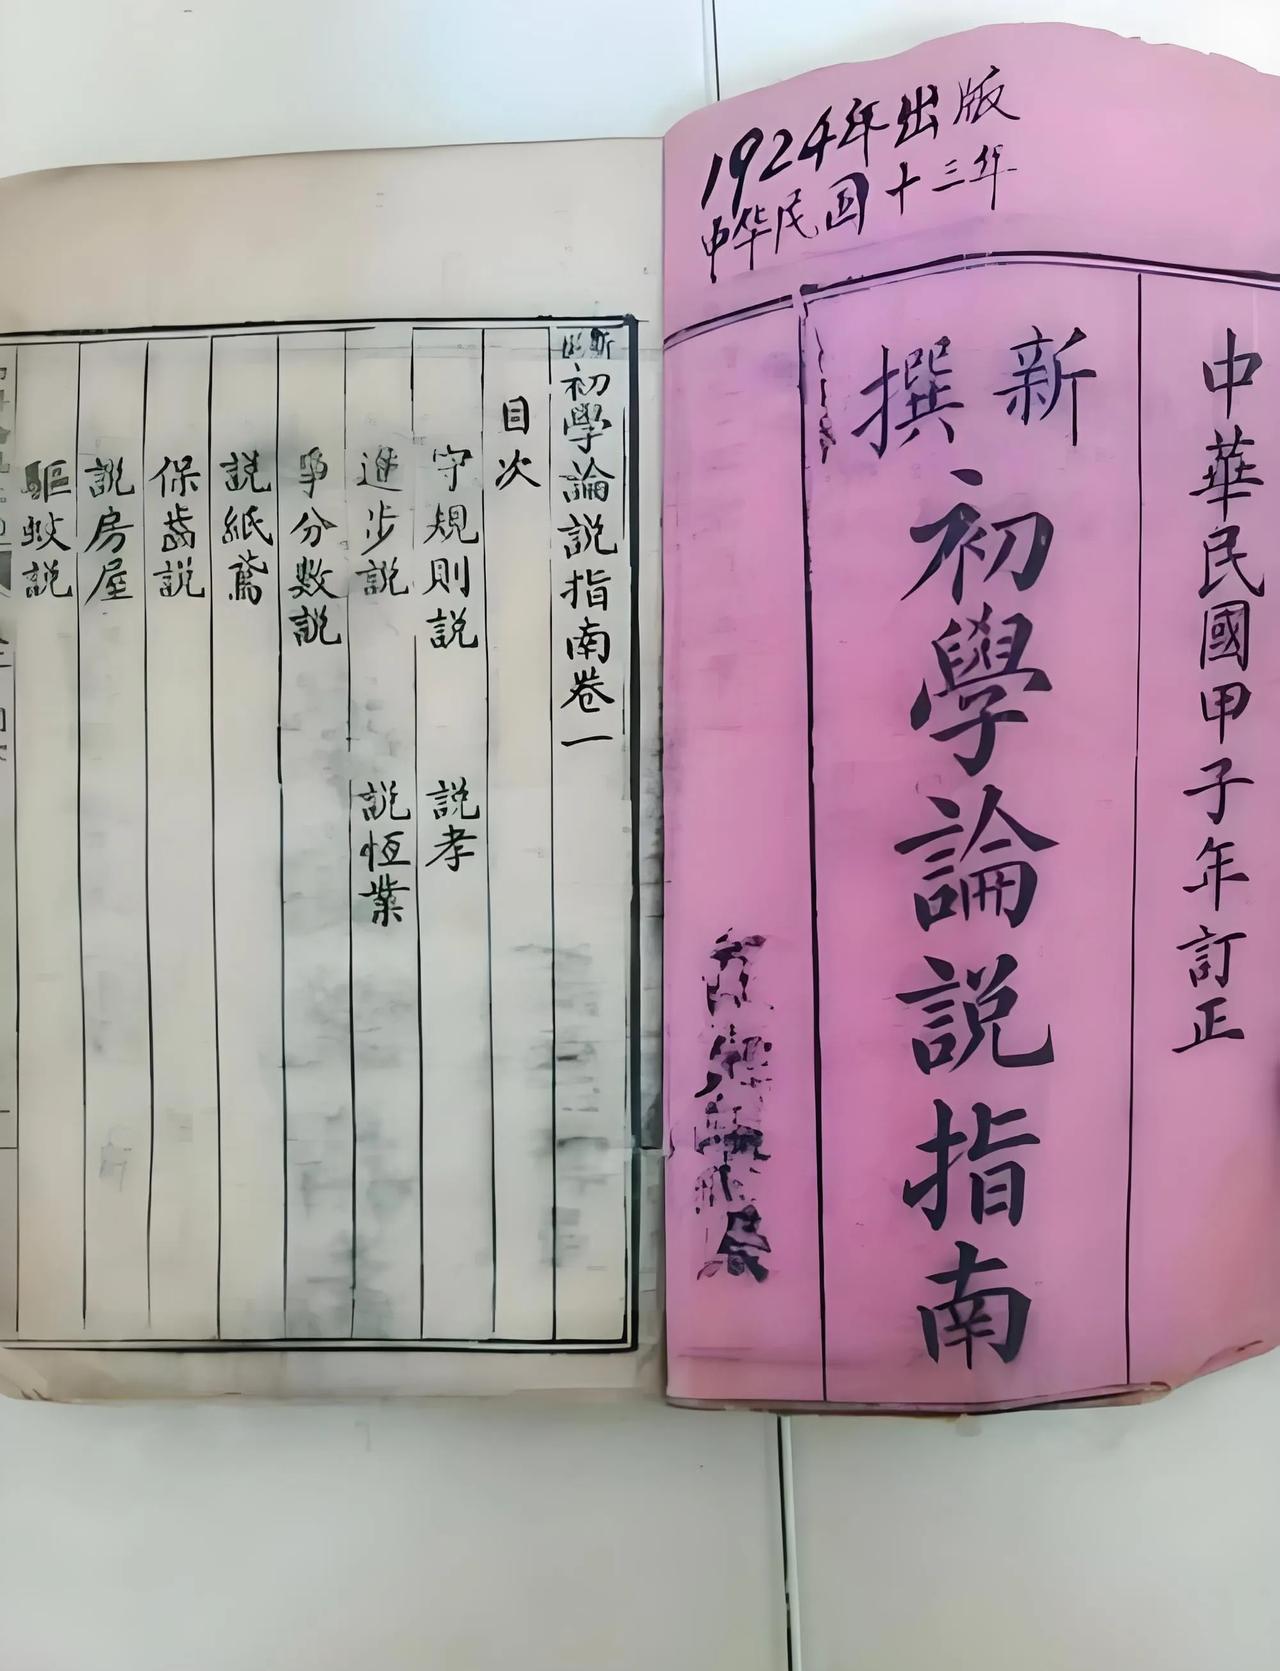 1924年出版
中华民国十三年
中華民國甲子年訂正
新撰
初學論說指南
新
初學論説指南卷一
目次
守規則説　説孝
進步説　説恆業
爭分數説
説紙鳶
保齒説
説房屋
驅蚊説